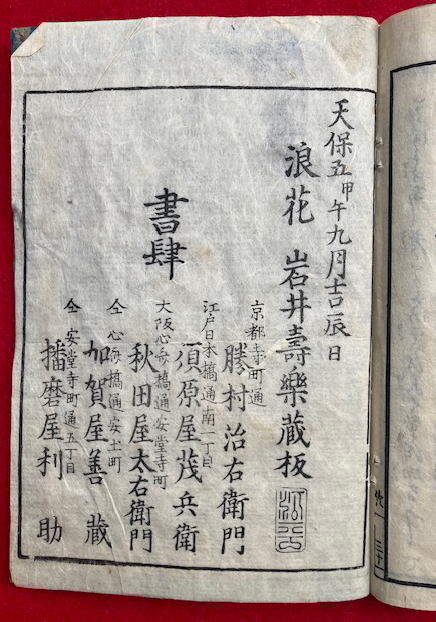 天保五甲午九月吉辰日
浪花 岩井壽樂蔵板
書肆
京都寺町通
勝村治右衛門
江戸日本橋通南一丁目
須原屋茂兵衛
大阪心斎橋通安堂寺町
秋田屋太右衛門
仝 心斎橋通安土町
加賀屋善蔵
仝 安堂寺町通五丁目
播磨屋利助